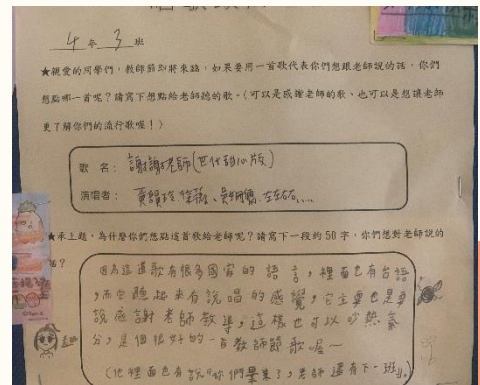 4 年 3 班
★親愛的同學們，教師節即將來臨，如果要用一首歌代表你們想跟老師說的話，你們
想點哪一首呢？請寫下想點給老師聽的歌。（可以是感謝老師的歌、也可以是想讓老師
更了解你們的流行歌喔！）
歌 名：謝謝老師(巴代甜心版)
演唱者：
★承上題，為什麼你們想點這首歌給老師呢？請寫下一段約 50 字，你們想對老師說的
話？
因為這道歌有很多國家的語言，裡面也有台語
，而它聽起來有說唱的感覺，它主要也是要
說感謝老師教導，這樣也可以吵熱氣
分，是個很好的一首教師節歌喔～
(他裡面也有說"你們畢業了，老師還有下一班"。)